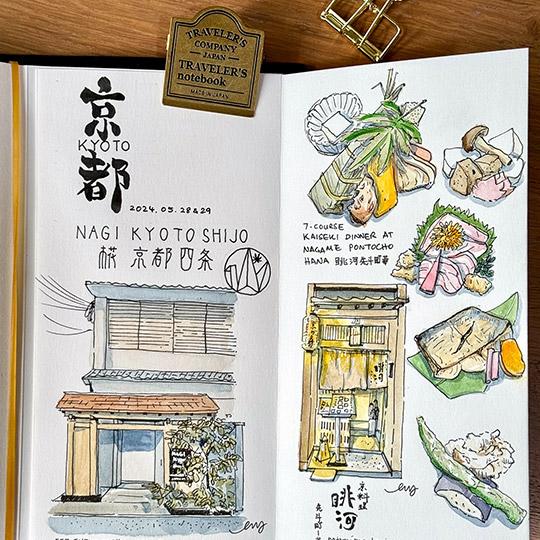 TRAVELER'S
COMPANY
JAPAN
TRAVELER'S
notebook
MADE IN JAPAN
京
KYOTO
都
2024. 05. 28 & 29
NAGI KYOTO SHIJO
京都四条
7-COURSE
KAISEKI DINNER AT
NAGAME PONTOCHO
HANA
京料理
眺河